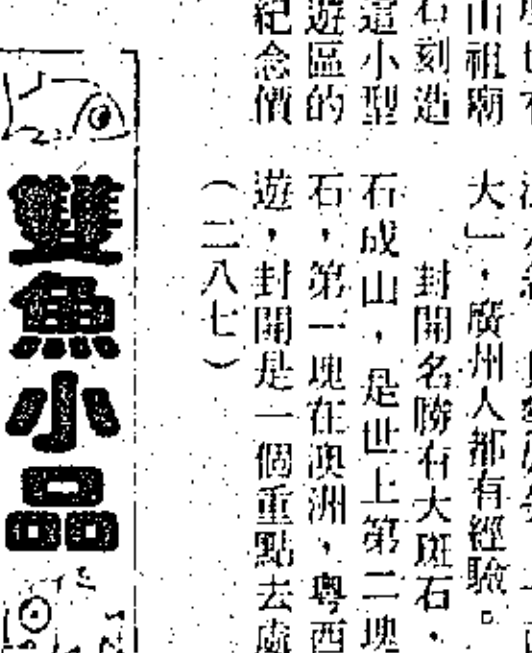 山祖廟
石刻造
這小型
遊區的
紀念價
大」，廣州人都有經驗。
封開名勝有大斑石，
石成山，是世上第二塊
石，第一塊在澳洲，粵西
遊，封開是一個重點去處
（二八七）
雙魚小品